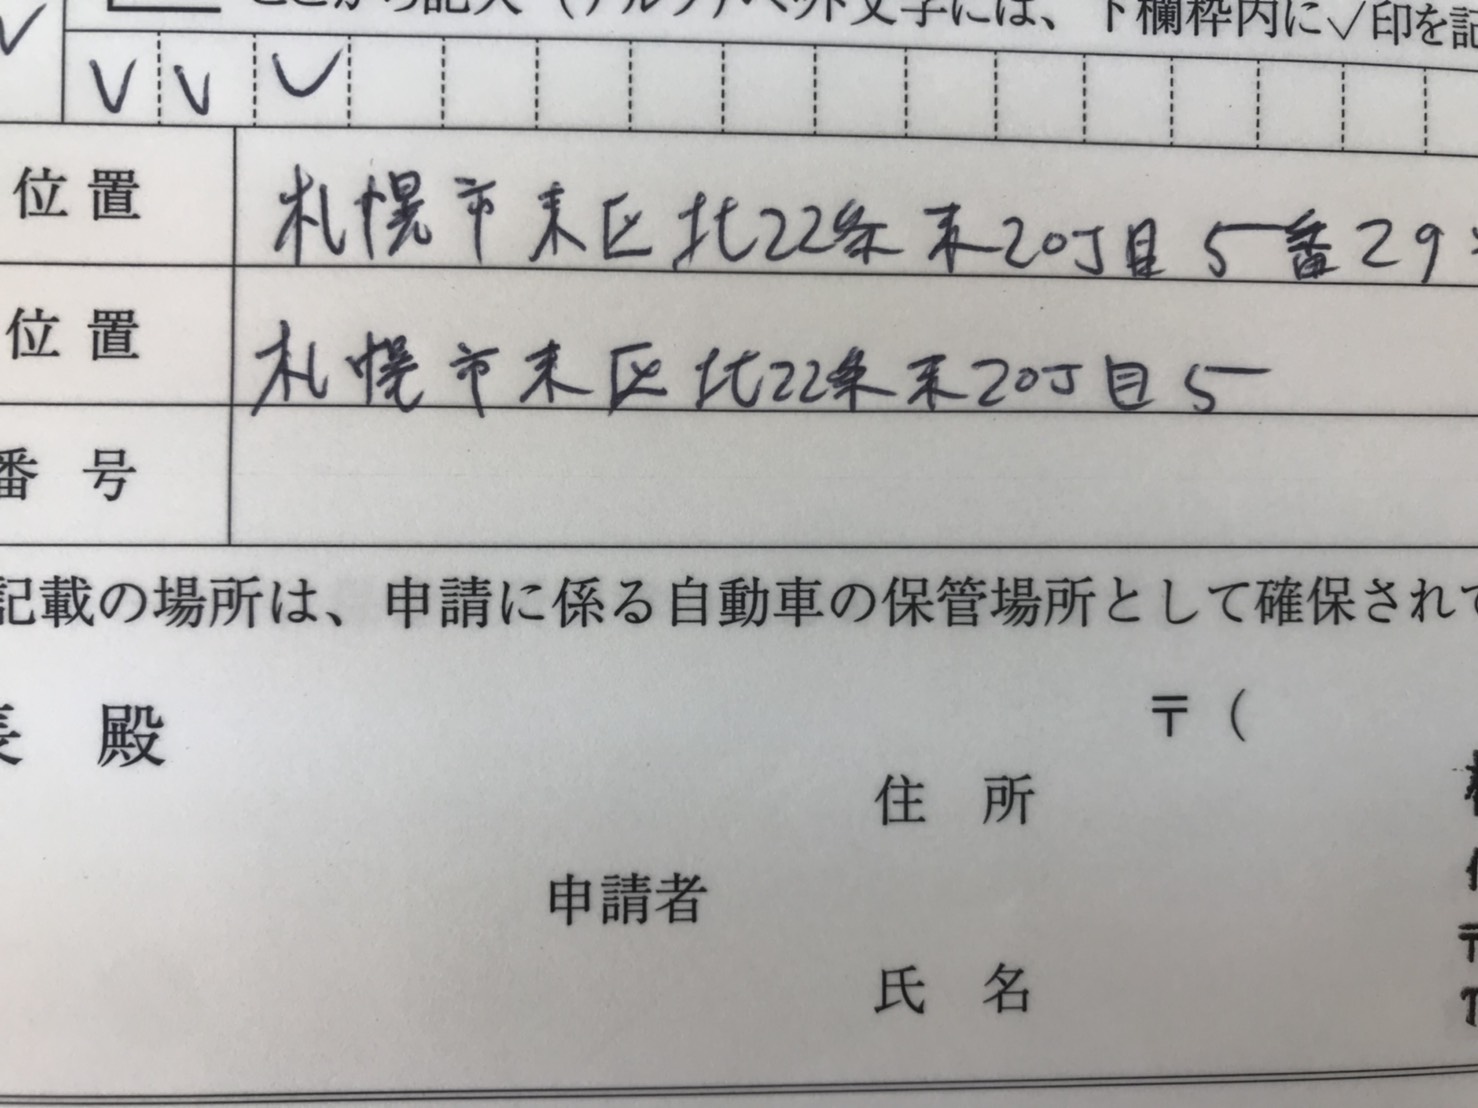 ここから記入（アルファベット文字には、下欄枠内に✓印を記
位置 札幌市東区北22条東20丁目5番29
位置 札幌市東区北22条東20丁目5
番号
記載の場所は、申請に係る自動車の保管場所として確保されて
長 殿
〒（
住 所
申請者
氏 名